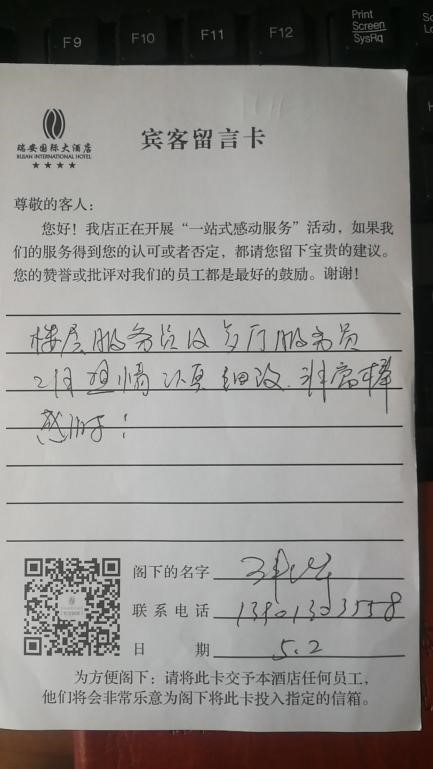 F9 F10 F11 F12 Print Screen/SysRq
瑞安国际大酒店
RUIAN INTERNATIONAL HOTEL
宾客留言卡
尊敬的客人：
您好！我店正在开展“一站式感动服务”活动，如果我
们的服务得到您的认可或者否定，都请您留下宝贵的建议。
您的赞誉或批评对我们的员工都是最好的鼓励。谢谢！
楼层服务员及多厅服务员
细致 非常棒
感谢！
阁下的名字
联系电话 13901303558
日期 5.2
为方便阁下：请将此卡交予本酒店任何员工，
他们将会非常乐意为阁下将此卡投入指定的信箱。